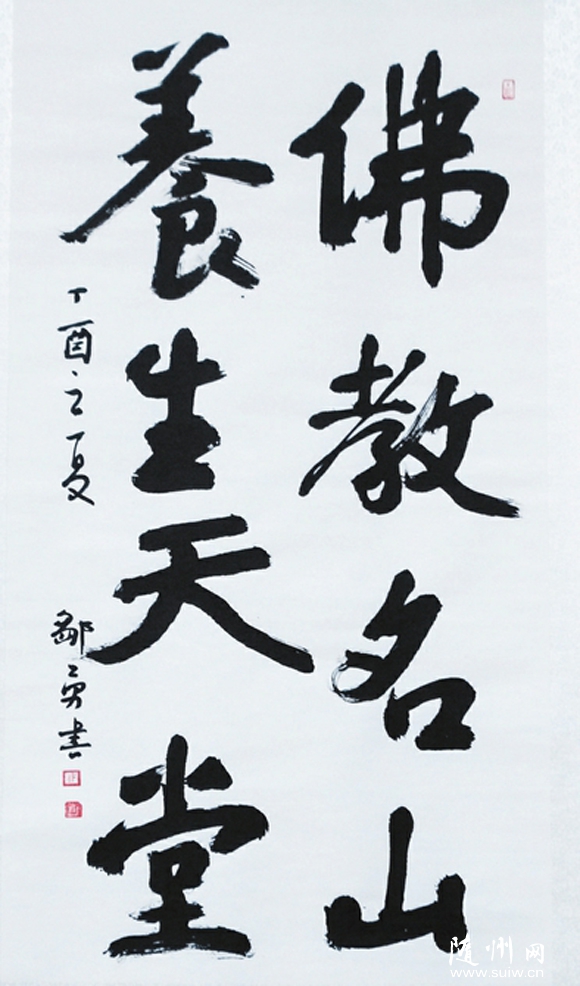 佛教名山
養生天堂
丁酉之夏
鄒勇書
随州网
www.suiw.cn